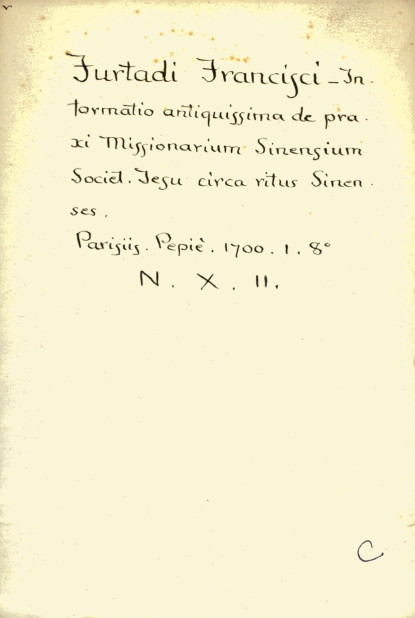 Furtadi Francisci - In-
formatio antiquissima de pra-
xi Missionarium Sinensium
Societ. Jesu circa ritus Sinen-
ses.
Parisiis. Pepiè. 1700. 1. 8°
N. X. 11.
C